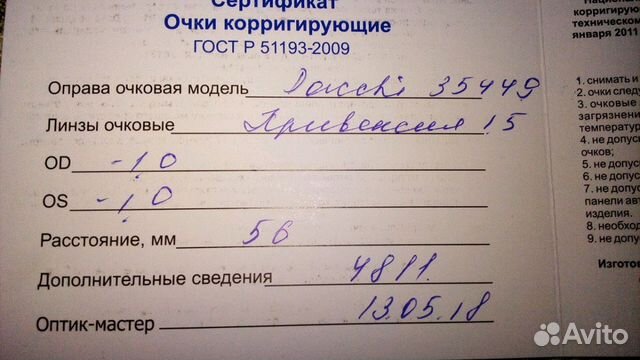 Сертификат
Очки корригирующие
ГОСТ Р 51193-2009
Оправа очковая модель Dacchi 35449
Линзы очковые 1.5
OD -1,0
OS -1,0
Расстояние, мм 56
Дополнительные сведения 4811
Оптик-мастер 13.05.18
Национал
корригирую
техническом
января 2011
1. снимать и
2. очки следу
3. очковые
загрязнени
температур
4. не допус
очков;
5. не допус
6. не допус
7. не допу
панели авт
изделия.
8. необход
9. не допу
Изготов
Avito